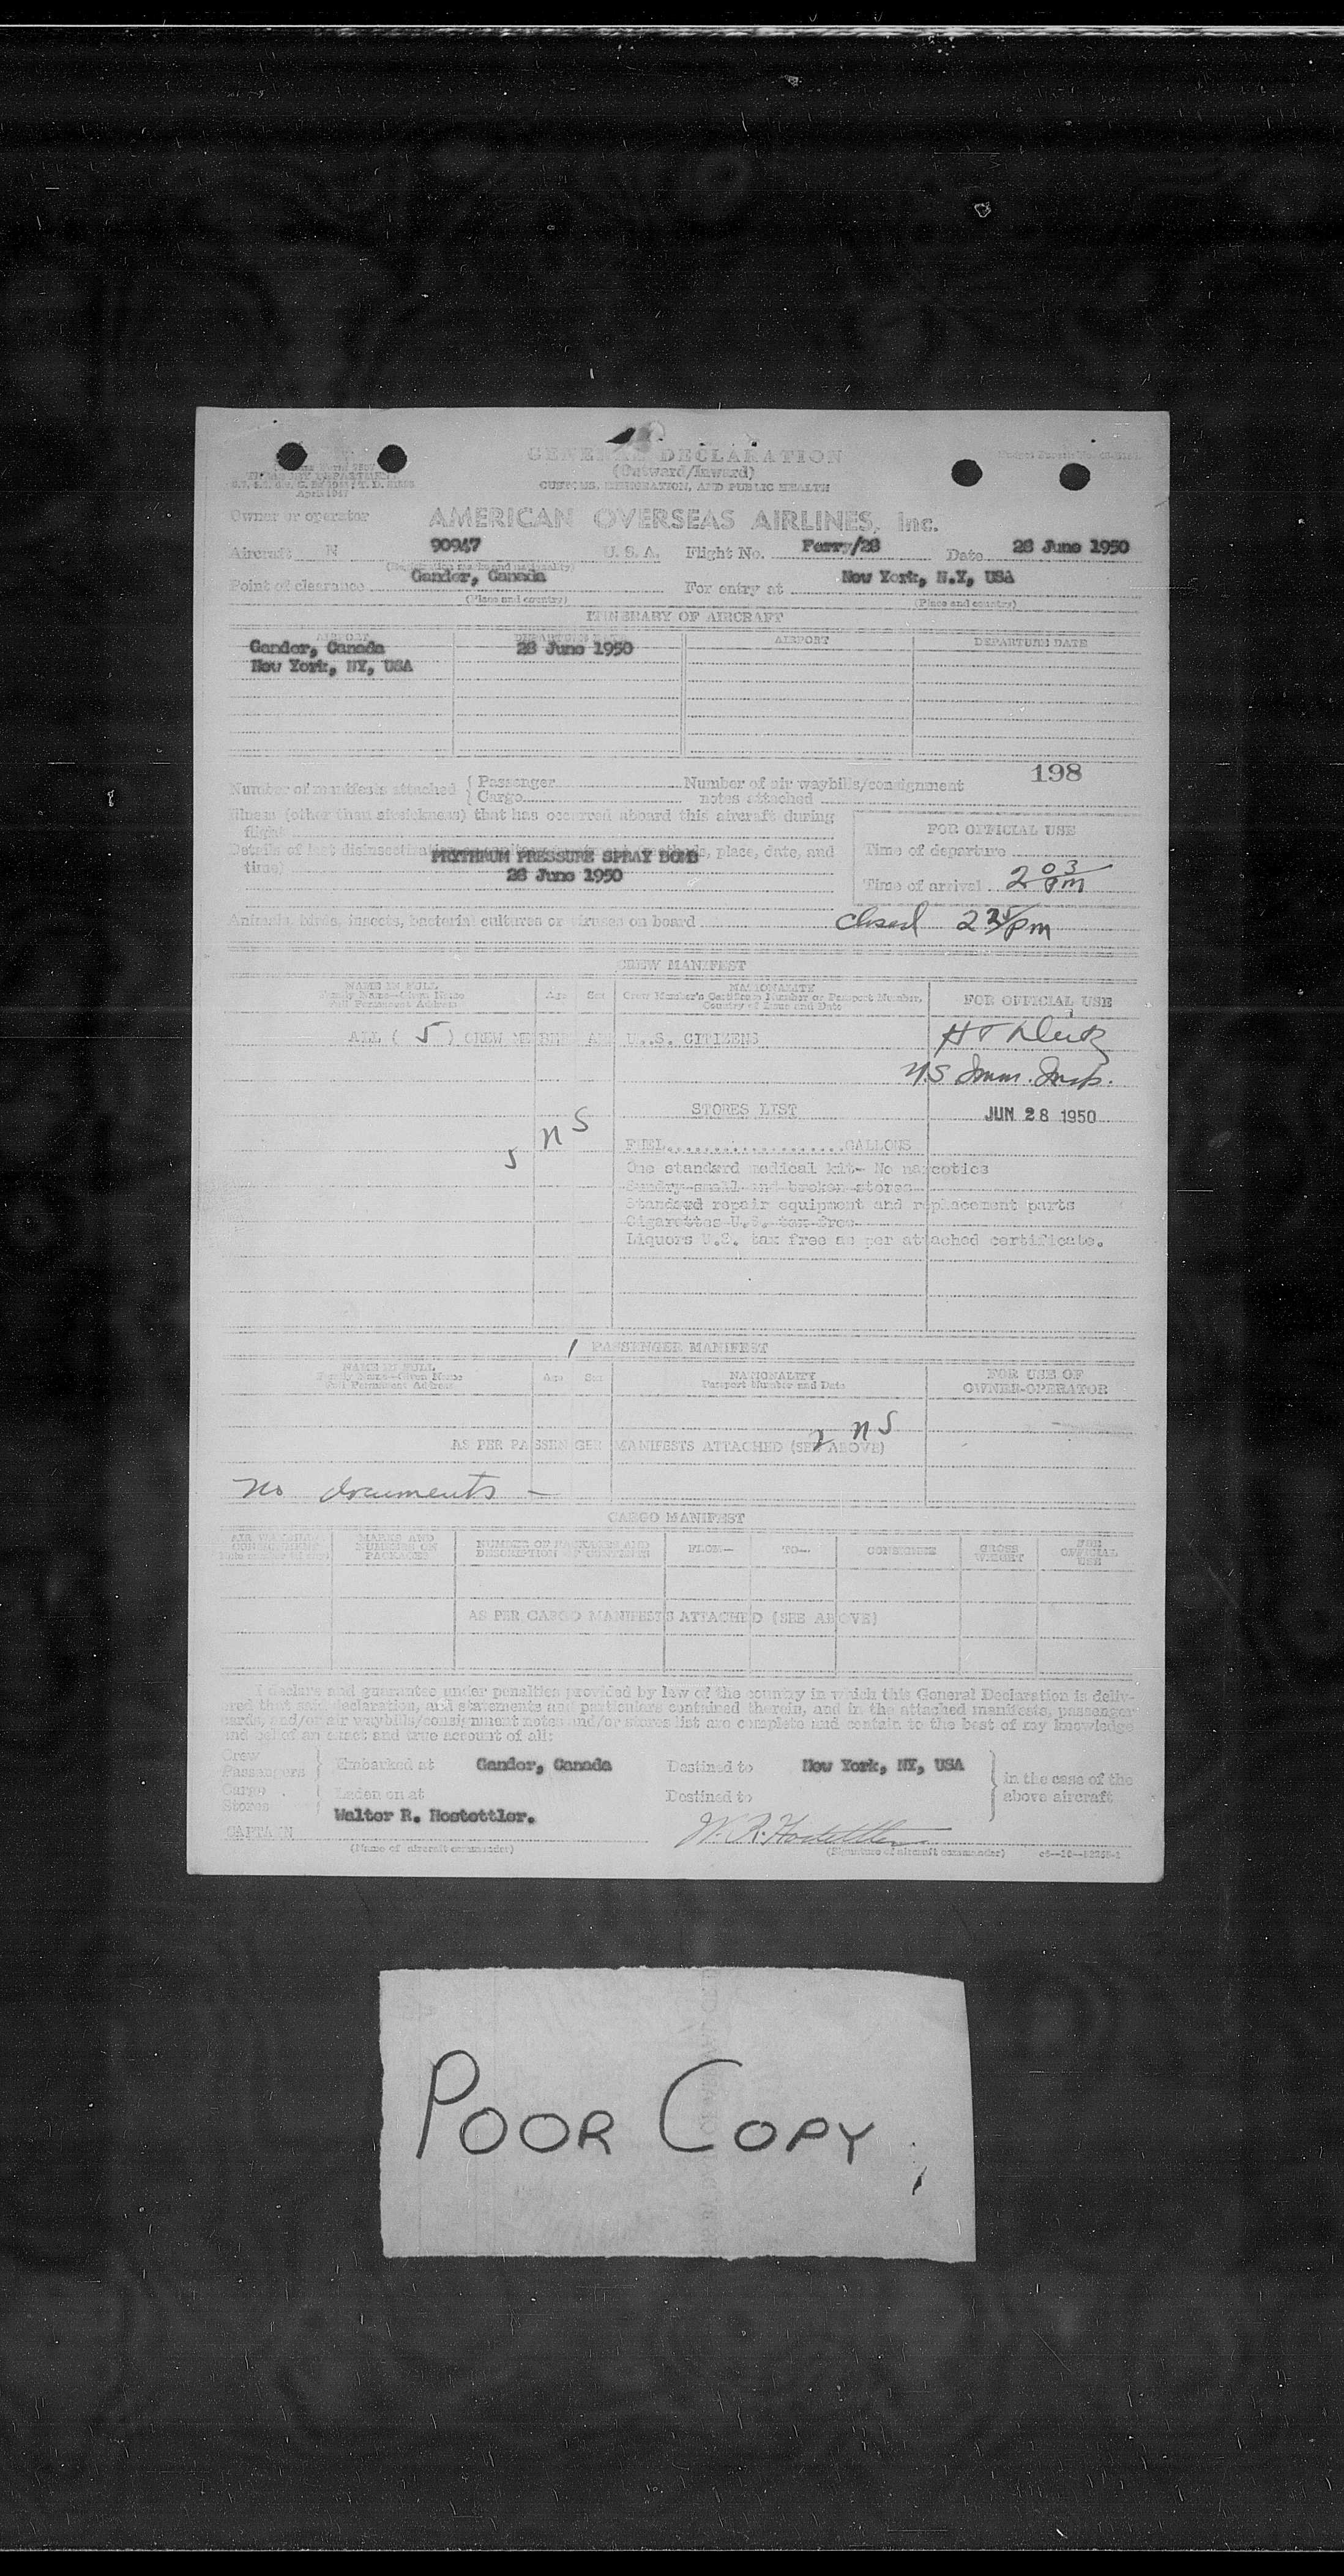 GENERAL DECLARATION
(Outward/Inward)
CUSTOMS, IMMIGRATION, AND PUBLIC HEALTH
TREASURY DEPARTMENT
April 1947
Owner or operator AMERICAN OVERSEAS AIRLINES, Inc.
Aircraft N 90947 U. S. A. Flight No. Ferry/28 Date 28 June 1950
(Registration marks and nationality)
Point of clearance Gander, Canada For entry at New York, N.Y, USA
(Place and country) (Place and country)
ITINERARY OF AIRCRAFT
AIRPORT DEPARTURE DATE AIRPORT DEPARTURE DATE
Gander, Canada 28 June 1950
New York, NY, USA
198
Number of manifests attached { Passenger Number of air waybills/consignment
Cargo notes attached
Illness (other than airsickness) that has occurred aboard this aircraft during
flight
FOR OFFICIAL USE
Details of last disinsectization or sanitary treatment, methods, place, date, and
time
PRYTHRUM PRESSURE SPRAY BOMB
28 June 1950
Time of departure
Time of arrival 2 03 pm
Animals, birds, insects, bacterial cultures or viruses on board closed 2 25 pm
CREW MANIFEST
NAME IN FULL Age Sex NATIONALITY FOR OFFICIAL USE
Family Name—Given Name Crew Member's Certificate Number or Passport Number,
Full Permanent Address Country of Issue and Date
ALL ( 5 ) CREW MEMBERS ARE U..S. CITIZENS
U.S Imm. Insp.
STORES LIST JUN 28 1950
5 n S
FUEL GALLONS
One standard medical kit- No narcotics
Sundry small and broken stores
Standard repair equipment and replacement parts
Cigarettes U.S. tax free
Liquors U.S. tax free as per attached certificate.
/ PASSENGER MANIFEST
NAME IN FULL Age Sex NATIONALITY FOR USE OF
Family Name—Given Name Passport Number and Date OWNER-OPERATOR
Full Permanent Address
2 n S
AS PER PASSENGER MANIFESTS ATTACHED (SEE ABOVE)
No documents -
CARGO MANIFEST
MARKS AND NUMBERS ON PACKAGES NUMBER OF PACKAGES AND DESCRIPTION OF CONTENTS FROM— TO— CONSIGNEE GROSS WEIGHT FOR OFFICIAL USE
AS PER CARGO MANIFESTS ATTACHED (SEE ABOVE)
I declare and guarantee under penalties provided by law of the country in which this General Declaration is deliv-
ered that said declaration, and statements and particulars contained therein, and in the attached manifests, passenger
cards, and/or air waybills/consignment notes and/or stores list are complete and contain to the best of my knowledge
and belief an exact and true account of all:
Crew
Passengers } Embarked at Gander, Canada Destined to New York, NY, USA } in the case of the
Cargo Laden on at Destined to above aircraft
Stores
CAPTAIN Walter R. Hostettler. W. R. Hostettler
(Name of aircraft commander) (Signature of aircraft commander)
POOR COPY